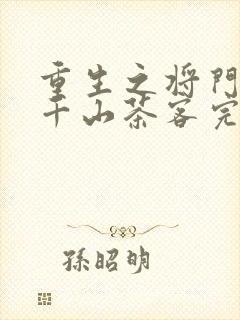 重生之将門
千山茶客完
孫昭明